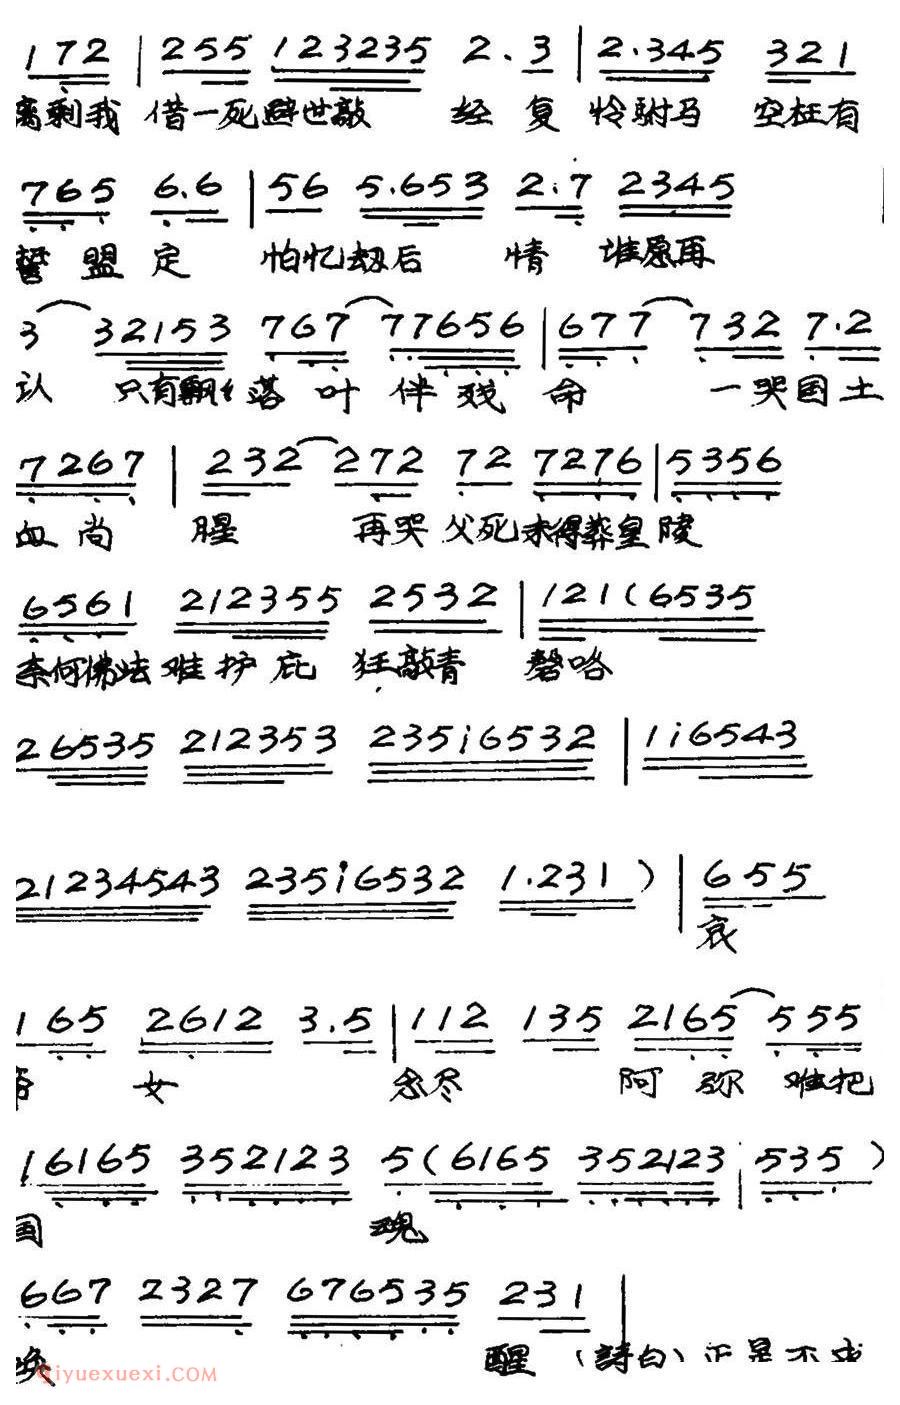 172 | 255 123235 2.3 | 2.345 321
离剩我 借一死避世敲 经 复 怜驸马 空枉有
765 6.6 | 56 5.653 2.7 2345
誓盟定 怕忆劫后 情 谁愿再
3 32153 767 777656 | 677 7 732 7.2
认 只有飘 落叶伴残命 一哭国土
7267 | 232 272 72 7276 | 5356
血尚 腥 再哭父死未得葬皇陵
6561 212355 2532 | 121(6535
奈何佛法难护庇 狂敲青 磬咯
26535 212353 235i6532 | 1i6543
21234543 235i6532 1.231) | 655
哀
165 2612 3.5 | 112 135 2165 555
帝 女 念尽 阿弥 难把
16165 352123 5(6165 352123 | 535)
国 魂
667 2327 676535 231 |
唤 醒 (詩白)正是不
qiyuexuexi.COM